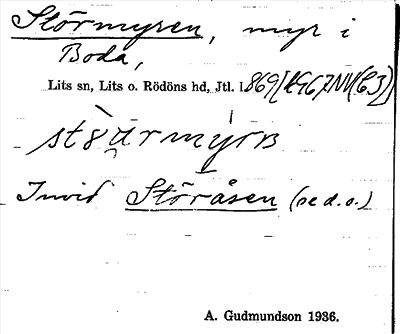 Störmyren, myr i
Boda,
Lits sn, Lits o. Rödöns hd, Jtl. l.
Invid Störåsen (se d.o.)
A. Gudmundson 1936.